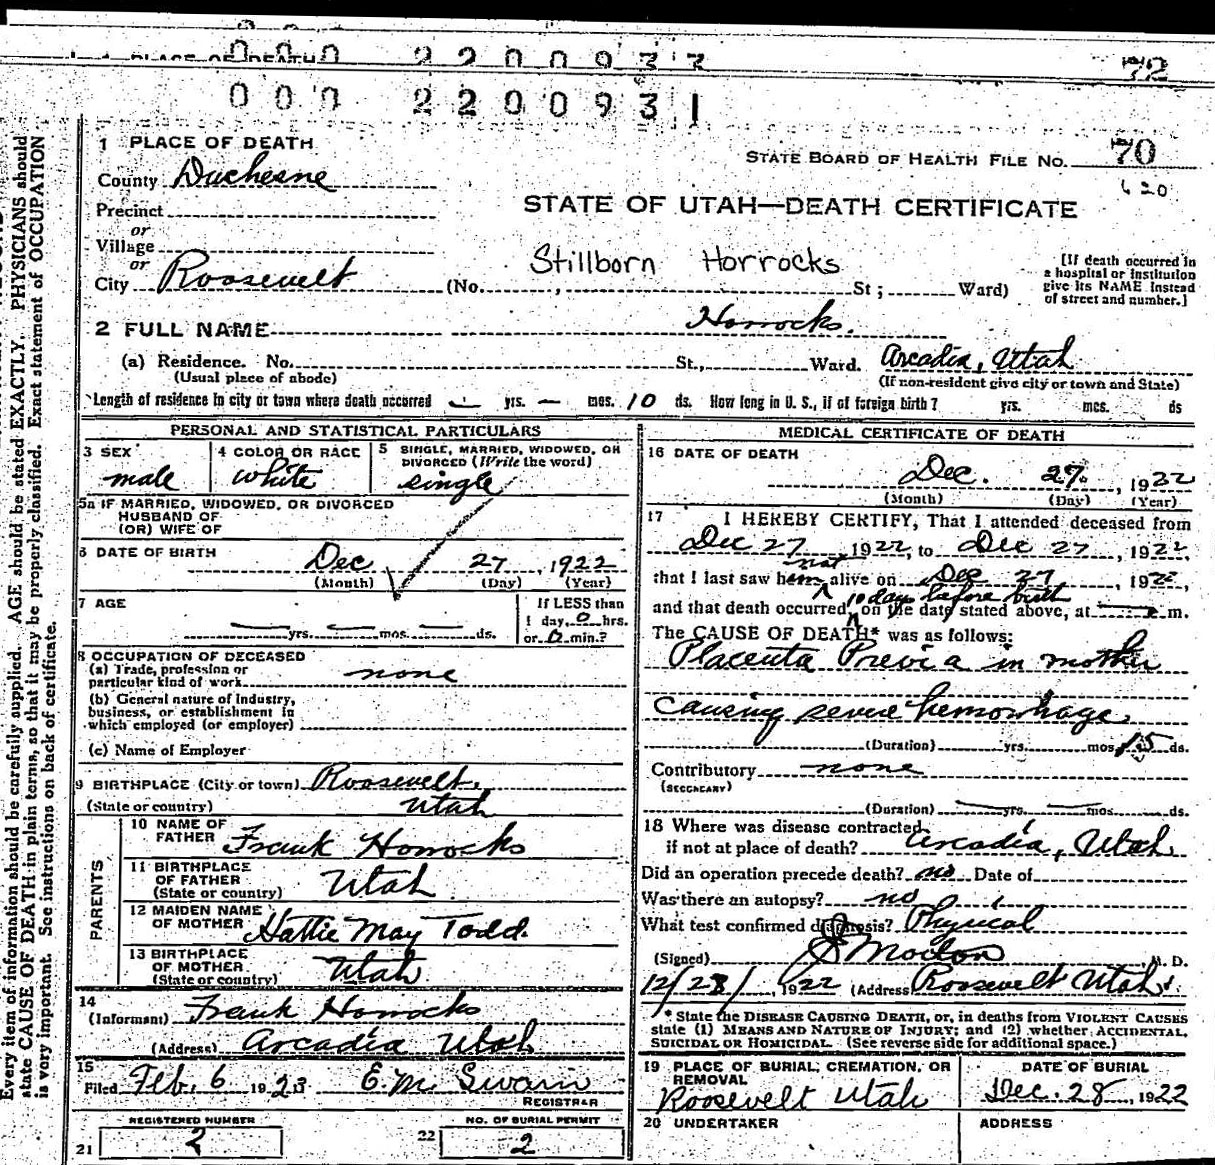 1 PLACE OF DEATH
000 2200933
72
000 2200931
1 PLACE OF DEATH
STATE BOARD OF HEALTH FILE No. 70
620
County Duchesne
Precinct
or
Village
or
City Roosevelt
STATE OF UTAH—DEATH CERTIFICATE
Stillborn Horrocks
(No. , St; Ward)
[If death occurred in
a hospital or institution
give its NAME instead
of street and number.]
2 FULL NAME Horrocks.
(a) Residence. No. St., Ward. Arcadia, Utah
(Usual place of abode)
(If non-resident give city or town and State)
Length of residence in city or town where death occurred — yrs. — mos. 10 ds. How long in U. S., if of foreign birth? yrs. mcs. ds
PERSONAL AND STATISTICAL PARTICULARS
3 SEX
male
4 COLOR OR RACE
white
5 SINGLE, MARRIED, WIDOWED, OR
DIVORCED (Write the word)
single
5a IF MARRIED, WIDOWED, OR DIVORCED
HUSBAND OF
(OR) WIFE OF
6 DATE OF BIRTH Dec 27, 1922
(Month) (Day) (Year)
7 AGE
— yrs. — mos. — ds.
If LESS than
1 day, 0 hrs.
or 0 min.?
8 OCCUPATION OF DECEASED
(a) Trade, profession or
particular kind of work none
(b) General nature of Industry,
business, or establishment in
which employed (or employer)
(c) Name of Employer
9 BIRTHPLACE (City or town) Roosevelt,
(State or country) Utah
PARENTS
10 NAME OF
FATHER Frank Horrocks
11 BIRTHPLACE
OF FATHER
(State or country) Utah
12 MAIDEN NAME
OF MOTHER Hattie May Todd.
13 BIRTHPLACE
OF MOTHER
(State or country) Utah
14
(Informant) Frank Horrocks
(Address) Arcadia Utah
15
Filed Feb. 6 1923 E.M. Swain
REGISTRAR
REGISTERED NUMBER
21 2
NO. OF BURIAL PERMIT
22 2
MEDICAL CERTIFICATE OF DEATH
16 DATE OF DEATH
Dec. 27, 1922
(Month) (Day) (Year)
17 I HEREBY CERTIFY, That I attended deceased from
Dec 27 1922, to Dec 27, 1922
not
that I last saw him alive on Dec 27, 1922,
10 days before birth
and that death occurred, on the date stated above, at — m.
The CAUSE OF DEATH* was as follows:
Placenta Previa in mother
causing severe hemorrhage
(Duration) yrs. mos. 15 ds.
Contributory none
(SECONDARY)
(Duration) — yrs. — mos. ds.
18 Where was disease contracted
if not at place of death? Arcadia, Utah
Did an operation precede death? no Date of
Was there an autopsy? no
What test confirmed diagnosis? Physical
(Signed) J Morton M. D.
12/28/, 1922 (Address Roosevelt Utah.
* State the DISEASE CAUSING DEATH, or, in deaths from VIOLENT CAUSES
state (1) MEANS AND NATURE OF INJURY; and (2) whether ACCIDENTAL,
SUICIDAL OR HOMICIDAL. (See reverse side for additional space.)
19 PLACE OF BURIAL, CREMATION, OR
REMOVAL
Roosevelt Utah
DATE OF BURIAL
Dec. 28, 1922
20 UNDERTAKER
ADDRESS
Every item of information should be carefully supplied. AGE should be stated EXACTLY. PHYSICIANS should
state CAUSE OF DEATH in plain terms, so that it may be properly classified. Exact statement of OCCUPATION
is very important. See instructions on back of certificate.